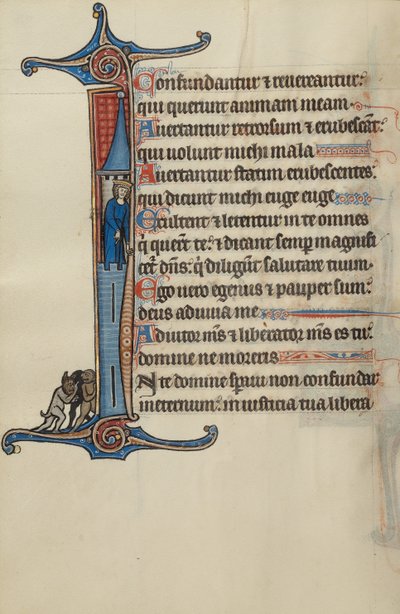 Confundantur & reuereantur:
qui querunt animam meam.
Auertantur retrorsum & erubescāt:
qui uolunt michi mala.
Auertantur statim erubescentes:
qui dicunt michi euge euge.
Exultent & letentur in te omnes
q̄ querūt te: & dicant semp̄ magnifi
cet' dn̄s: q̄ diligūt salutare tuum.
Ego uero egenus & pauper sum:
deus adiuua me.
Adiutor m̄s & liberator m̄s es tu:
domine ne moreris.
In te domine speraui non confundar
in eternum: in iusticia tua libera